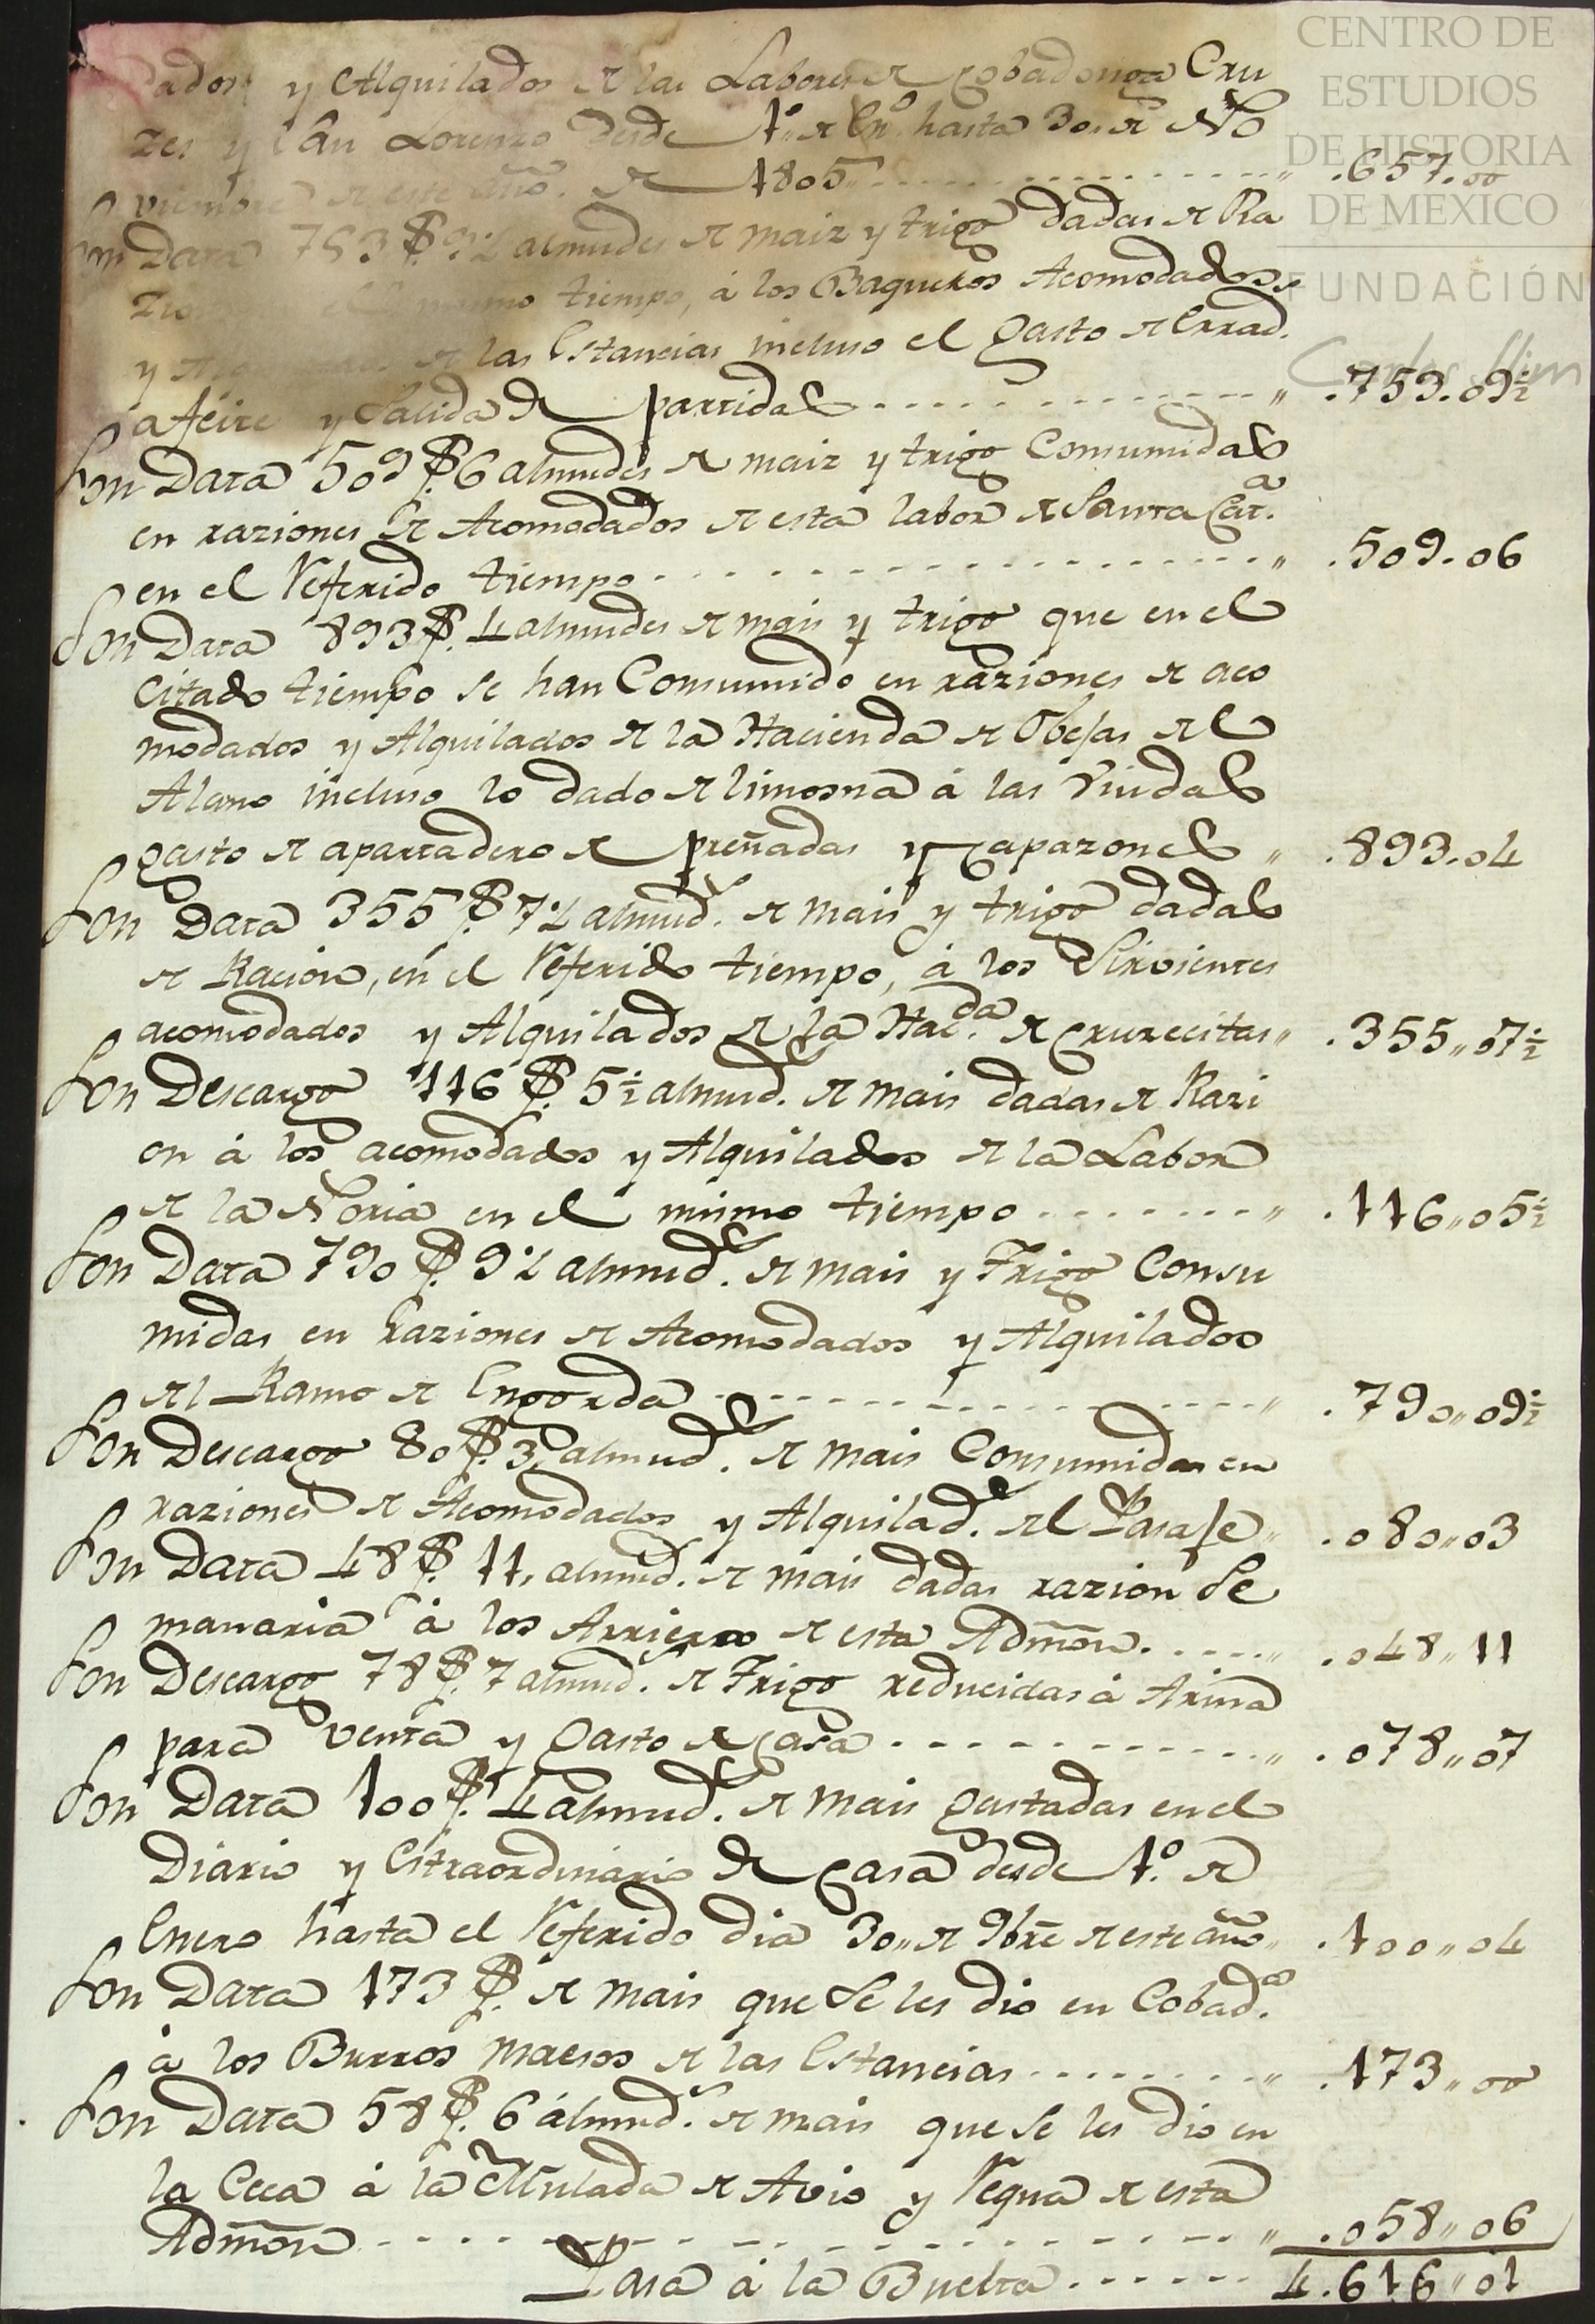 dados y Alquilados de las Labores de Cobadonga Cru
zes y San Lorenzo desde 1º de Enº hasta 30,, de No
viembre de este año de 1805 .657.00
Son Data 753 f. 9½ almudes de maiz y trigo dadas de Ra
mismo tiempo, á los Baqueros Acomodados,
y de las Estancias incluso el gasto de Errad.
afeite y Salida de partidas .753.09½
Son Data 509 f. 6 almudes de maiz y trigo Consumidas
en raziones de Acomodados de esta labor de Santa Cat.ª
en el Referido tiempo .509.06
Son Data 893 f. 4 almudes de mais y trigo que en el
Citado tiempo se han Consumido en raziones de aco
modados y Alquilados de la Hacienda de Obejas del
Alamo incluso lo dado de limosna á las Viudas
gasto de apartadero de preñadas y capazones .893.04
Son Data 355 f. 7½ almud.s de mais y trigo dadas
de Racion, en el Referido tiempo, á los Sirvientes
acomodados y Alquilados de la Hac.da de Cruzecitas .355,,07½
Son Descargo 116 f. 5½ almud. de mais dadas de Razi
on á los acomodados y Alquilados de la Labor
de la Noria en el mismo tiempo .116,,05½
Son Data 790 f. 9½ almud.s de mais y Trigo Consu
midas en Raziones de Acomodados y Alquilados
del Ramo de Engorda .790,,09½
Son Descargo 80 f. 3, almud.s de mais Consumidas en
raziones de Acomodados y Alquilad.s del Pasaje .080,,03
Son Data 48 f. 11, almud. de mais dadas razion Se
manaria á los Arrieros de esta Admōn. .048,,11
Son Descargo 78 f. 7 almud. de Trigo reducidas á Arina
para venta y Gasto de Casa .078,,07
Son Data 100 f. 4 almud.s de mais gastadas en el
Diario y Estraordinario de Casa desde 1º. de
Enero hasta el Referido dia 30,, de 9bre de este año .100,,04
Son Data 173 f. de mais que Se les dio en Cobad.ª
á los Burros maesos de las Estancias .173,,00
Son Data 58 f. 6 almud.s de mais que Se les dio en
la Ceca á la Mulada de Avio y Yegua de esta
Admōn .058,,06
Pasa á la Buelta 4.616,,01
CENTRO DE
ESTUDIOS
DE HISTORIA
DE MEXICO
FUNDACIÓN
Carlos Slim